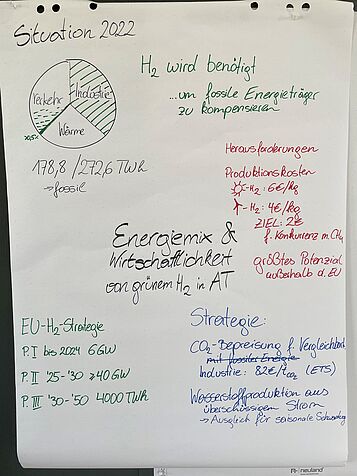 Situation 2022
Verkehr
Industrie
Wärme
178,8 / 272,6 TWh
→ fossil
H₂ wird benötigt
...um fossile Energieträger
zu kompensieren
Herausforderungen
Produktionskosten
-H₂: 6€/kg
-H₂: 4€/kg
ZIEL: 2€
f. Konkurrenz m. CH₄
größtes Potenzial
außerhalb d. EU
Energiemix &
Wirtschaftlichkeit
von grünem H₂ in AT
EU-H₂-Strategie
P. I bis 2024 6 GW
P. II '25-'30 ≥40 GW
P. III '30-'50 4000 TWh
Strategie:
CO₂-Bepreisung f. Vergleichbark.
mit fossiler Energie
Industrie: 82€/t CO₂ (ETS)
Wasserstoffproduktion aus
überschüssigem Strom
→ Ausgleich für saisonale
neuland